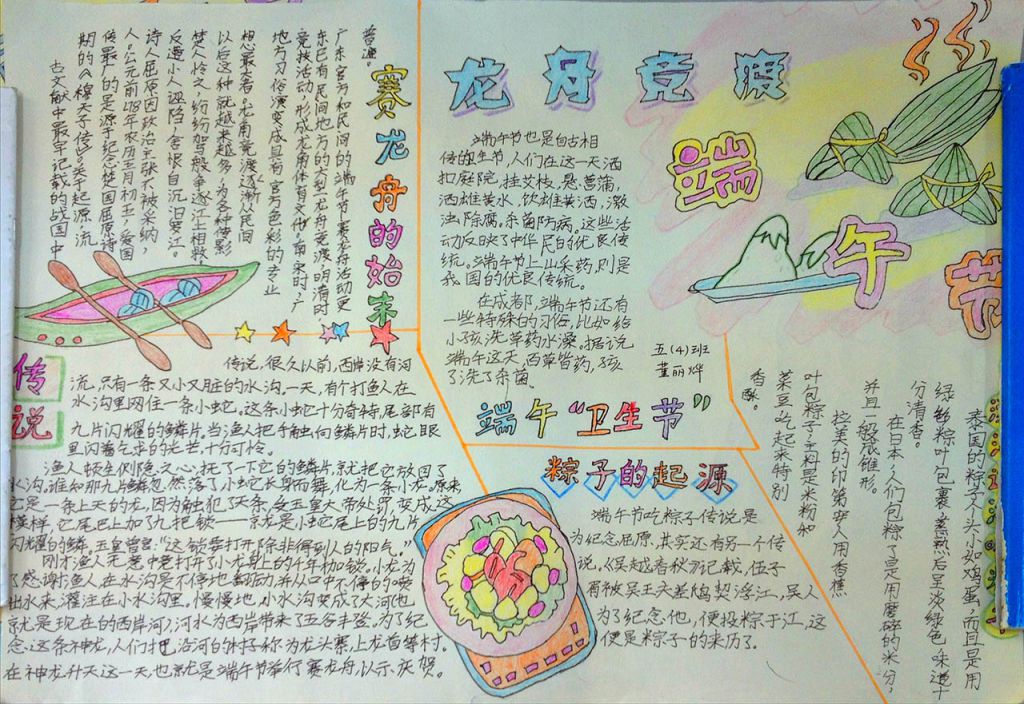 赛龙舟的始末
古文献中最早记载的战国中
期的《穆天子传》。关于起源,流
传最广的是源于纪念楚国屈原诗
人。公元前278年农历五月初五,爱国
诗人屈原因政治主张不被采纳,
反遭小人诬陷,含恨自沉汨罗江。
楚人怜之,纷纷驾般争逐江上相救
以后这种就越来越多,为各种传影
地方习俗演变成具有官方色彩的专业
竞技活动,形成龙舟体育文化。南宋时,广
东已有民间地方的大型龙舟竞渡,明清时
广东官方和民间的端午节赛龙舟活动更
普遍。
龙舟竞渡
端午节
端午节也是自古相
传的卫生节,人们在这一天洒
扫庭院,挂艾枝,悬菖蒲,
洒雄黄水,饮雄黄酒,激
浊除腐,杀菌防病。这些活
动反映了中华民的优良传
统。端午节上山采药,则是
我国的优良传统。
在成都,端午节还有
一些特殊的习俗,比如给
小孩洗草药水澡。据说
端午这天,百草皆药,孩
了洗了杀菌。
五(4)班
董丽烨
端午“卫生节”
传说
传说,很久以前,西岸没有河
流,只有一条又小又脏的水沟。一天,有个打鱼人在
水沟里网住一条小蛇。这条小蛇十分奇特,尾部有
九片闪耀的鳞片。当渔人把手触向鳞片时,蛇眼
里闪着乞求的光芒,十分可怜。
渔人顿生恻隐之心,抚了一下它的鳞片,就把它放回了
水沟。谁知那九片鳞忽然落了,小蛇长身而舞,化为一条小龙。原来
它是一条上天的龙,因为触犯了天条,受玉皇大帝处罚,变成这
模样,它尾巴上加了九把锁——京龙是小蛇尾上的九片
闪耀的鳞。玉皇曾言:“这锁要打开除非得到人的阳气。”
刚才渔人无意中竟打开了小龙身上的千年枷锁。小龙为
了感谢渔人,在水沟里不停地翻动,并从口中不停的喷
出水来,灌注在小水沟里。慢慢地,小水沟变成了大河(也
就是现在的西岸河);河水为西岸带来了五谷丰登。为了纪
念这条神龙,人们把沿河的村子称为龙头寨、上龙首等村。
在神龙升天这一天,也就是端午节举行赛龙舟,以示庆贺。
粽子的起源
端午节吃粽子传说是
为纪念屈原,其实还有另一个传
说,《吴越春秋》记载,伍子
胥被吴王夫差赐契浮江,吴人
为了纪念他,便投粽于江,这
便是粽子的来历了。
泰国的粽子个头小如鸡蛋,而且是用
绿丝粽叶包裹,蒸熟后呈淡绿色,味道十
分清香。
在日本,人们包粽了是用磨碎的米分,
并且一般展锥形。
拉美的印第安人用香蕉
叶包粽子,主料是米粉和
菜豆,吃起来特别
香酥。